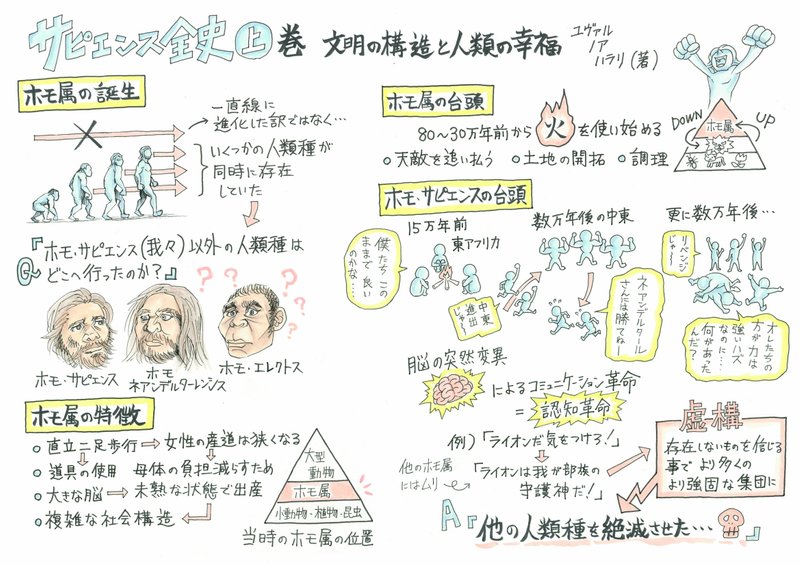 サピエンス全史 上 巻 文明の構造と人類の幸福
ユヴァル
ノア
ハラリ(著)
ホモ属の誕生
一直線に
進化した訳ではなく…
いくつかの人類種が
同時に存在
していた
『ホモ・サピエンス(我々)以外の人類種は
Q
どこへ行ったのか?』
? ? ? ?
ホモ・サピエンス
ホモ
ネアンデルターレンシス
ホモ・エレクトス
ホモ属の特徴
直立二足歩行
女性の産道は狭くなる
道具の使用
母体の負担減らすため
大きな脳
未熟な状態で出産
複雑な社会構造
大型
動物
ホモ属
小動物・植物・昆虫
当時のホモ属の位置
ホモ属の台頭
80〜30万年前から 火 を使い始める
天敵を追い払う
土地の開拓
調理
DOWN
UP
ホモ属
ホモ・サピエンスの台頭
15万年前
東アフリカ
僕たち この
ままで良い
のかな…
中東
進出
じゃ〜
数万年後の中東
ネアンデルタール
さんには勝てねー
更に数万年後…
リベンジ
じゃ〜!
オレたちの
方が力は
強いハズ
なのに…
何があった
んだ?
脳の突然変異
によるコミュニケーション革命
= 認知革命
例)「ライオンだ気をつけろ!」
他のホモ属
にはムリ
「ライオンは我が部族の
守護神だ!」
虚構
存在しないものを信じる
事で より多くの
より強固な集団に
A『他の人類種を絶滅させた… 』